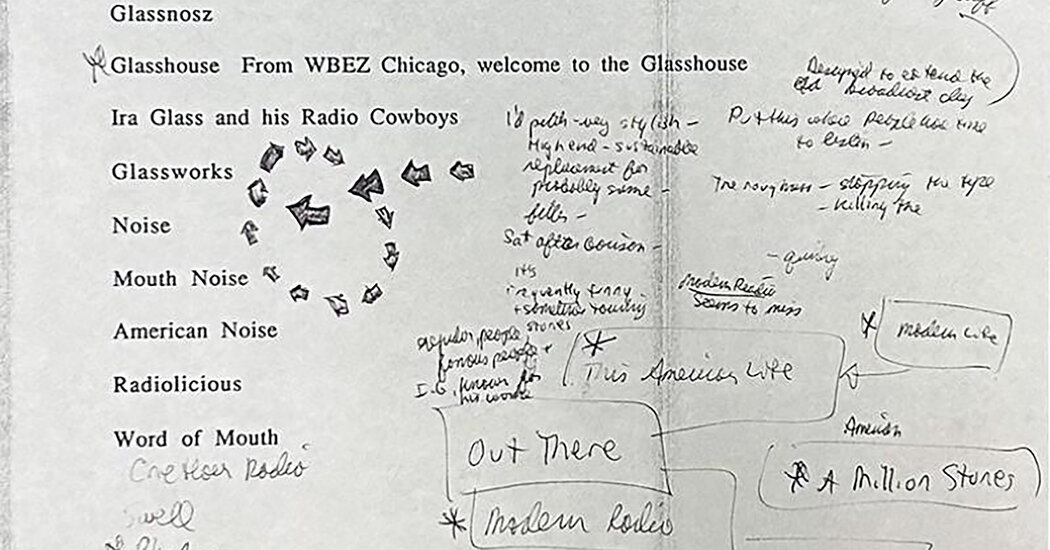 Glassnosz
Glasshouse From WBEZ Chicago, welcome to the Glasshouse
Designed to extend the
old broadcast day
Ira Glass and his Radio Cowboys
I'd pitch - very stylish -
High end - sustainable
replacement for
probably some -
filler -
Put this where people have time
to listen -
Glassworks
The roughness - stopping the type
- killing the
Noise
Sat afternoon -
- quirky
Mouth Noise
its
frequently funny
+ sometimes moving
stories
Modern Radio
Seems to miss
American Noise
regular people,
famous people +
I.G. known for
his work
* This American Life
* Modern Life
Radiolicious
Word of Mouth
Out There
American
* A Million Stories
Creature Radio
Swell
* Modern Radio